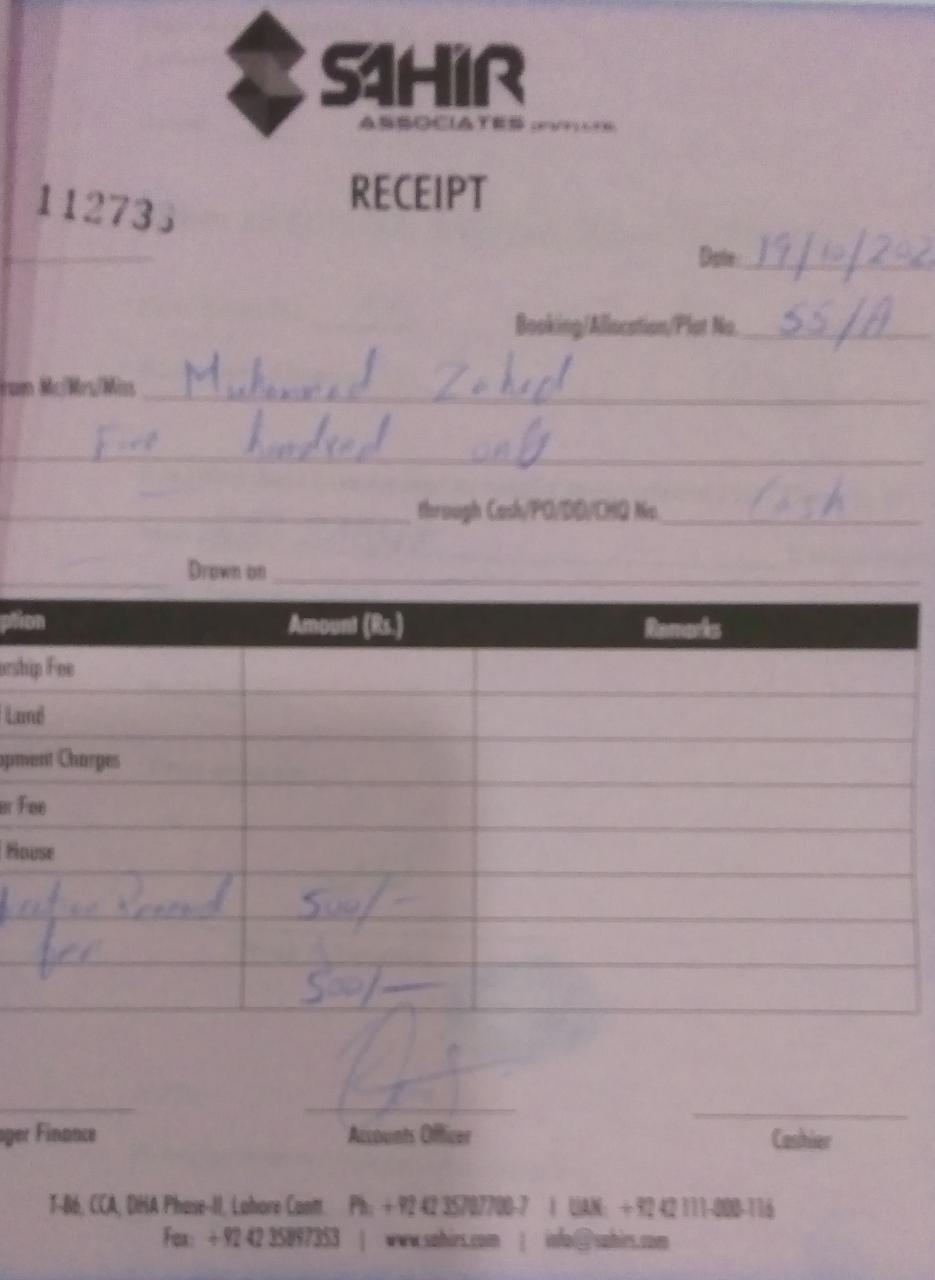 SAHIR
ASSOCIATES (PVT) LTD.
RECEIPT
11273
Date 19/10/202
Booking/Allocation/Plot No. SS/A
rom Mr/Mrs/Miss Muhammad Zahid
Five hundred only
through Cash/PO/DD/CHQ No. Cash
Drawn on
ption Amount (Rs.) Remarks
ership Fee
Land
opment Charges
er Fee
House
500/-
fee
500/-
ager Finance Accounts Officer Cashier
T-86, CCA, DHA Phase-II, Lahore Cantt. Ph: +92 42 35707700-7 | UAN: +92 42 111-000-116
Fax: +92 42 35897353 | www.sahirs.com | info@sahirs.com